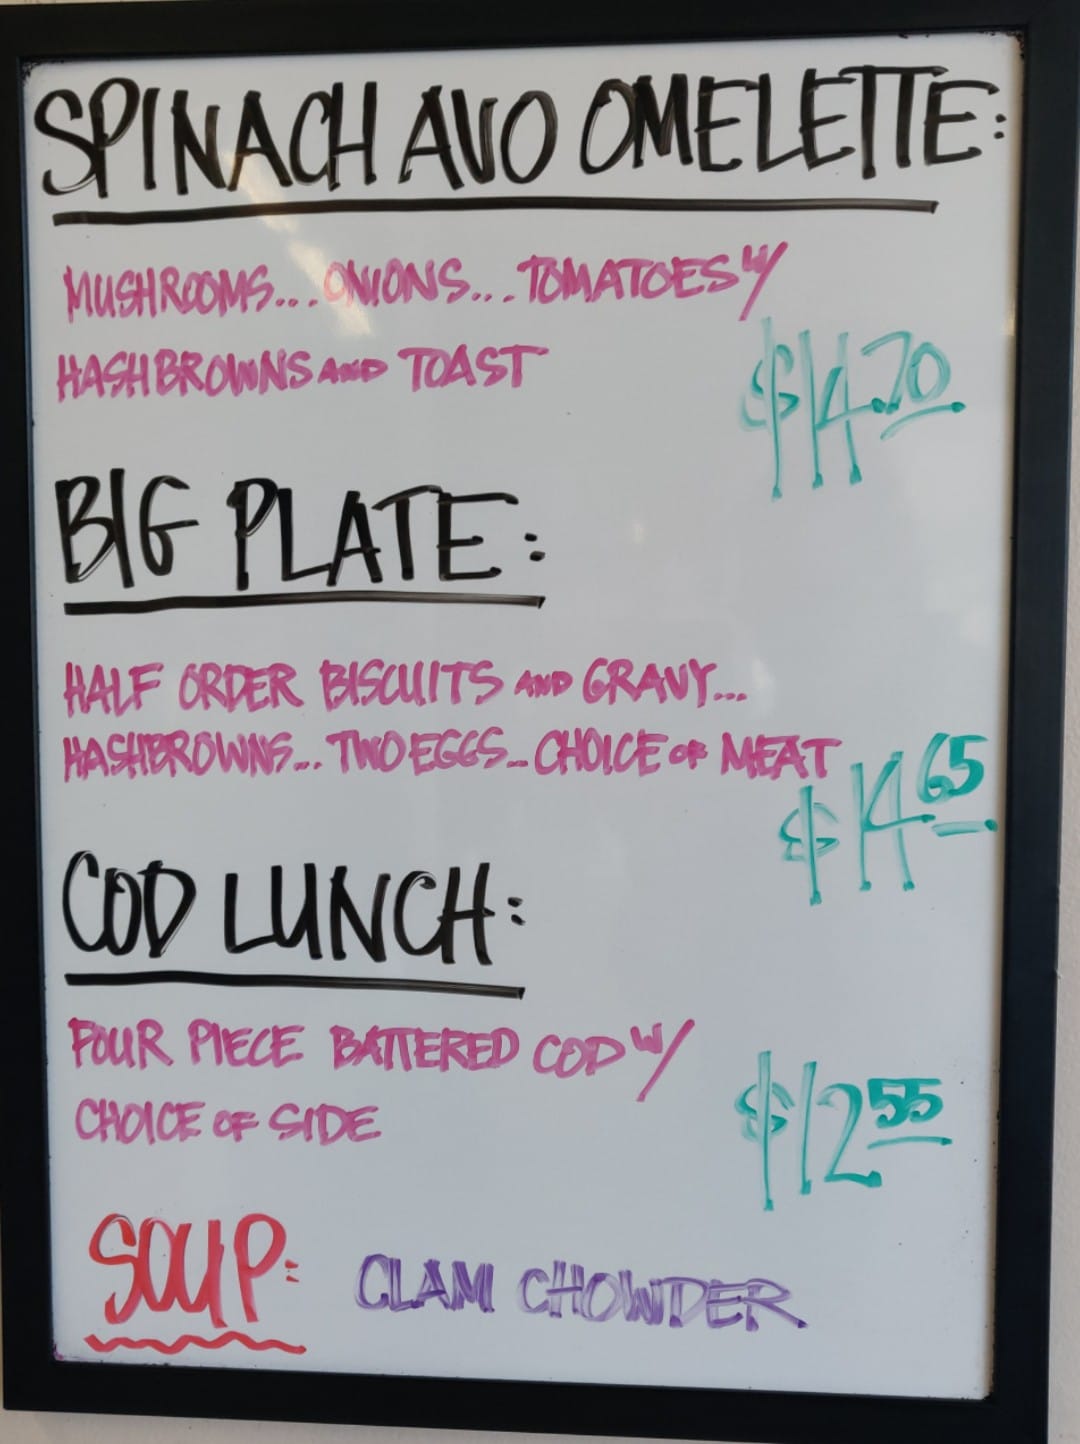 SPINACH AVO OMELETTE:
MUSHROOMS...ONIONS...TOMATOES W/
HASHBROWNS AND TOAST
$14.70
BIG PLATE:
HALF ORDER BISCUITS AND GRAVY...
HASHBROWNS...TWO EGGS...CHOICE OF MEAT
$14.65
COD LUNCH:
FOUR PIECE BATTERED COD W/
CHOICE OF SIDE
$12.55
SOUP: CLAM CHOWDER